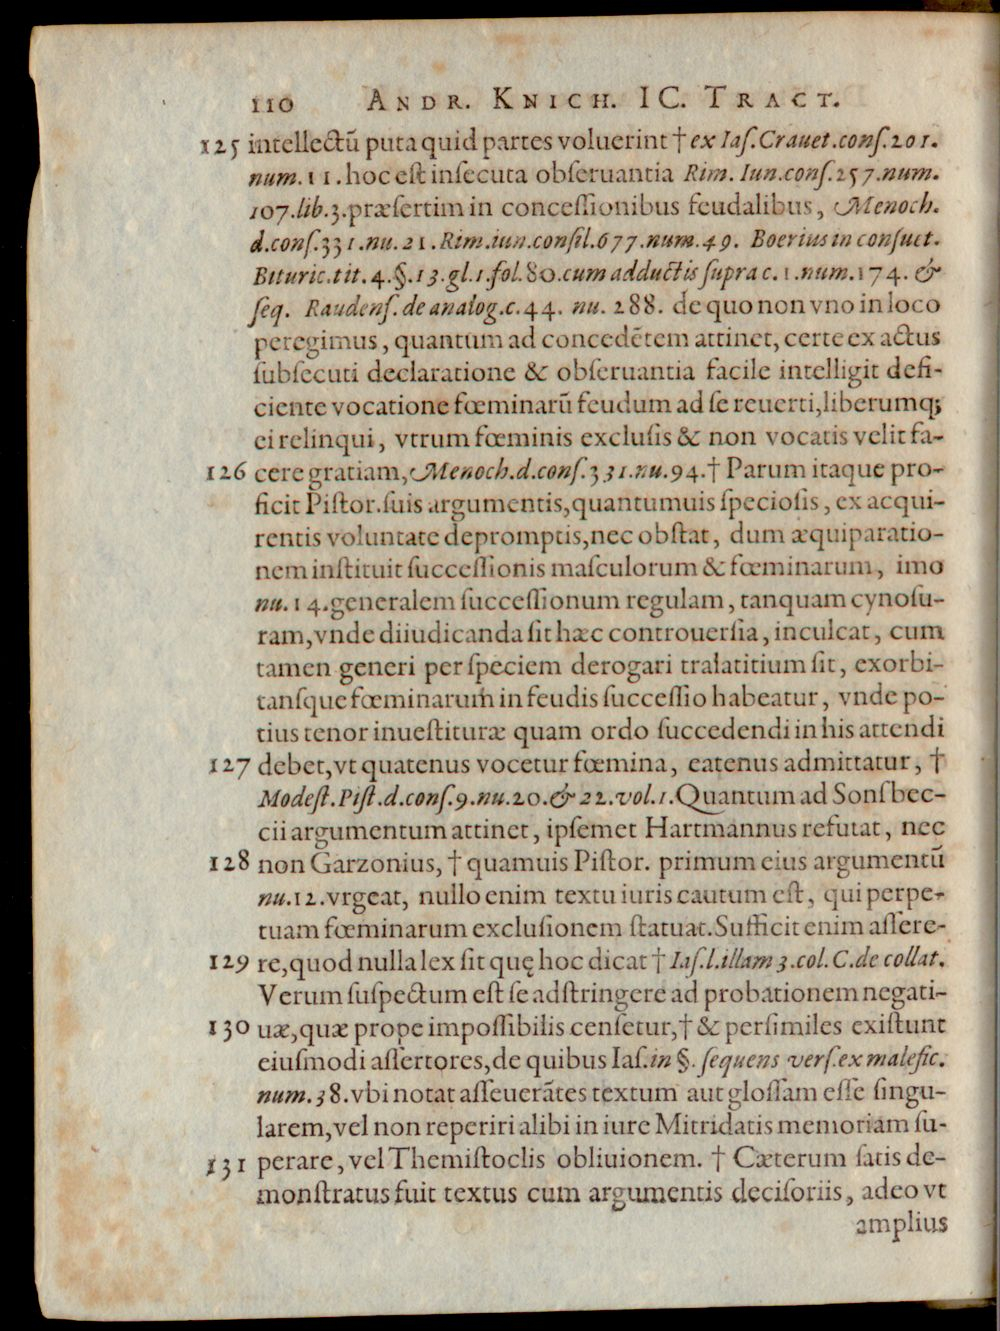 110 ANDR. KNICH. IC. TRACT.
125 intellectũ puta quid partes voluerint † ex Iaſ. Crauet. conſ. 201.
num. 11. hoc eſt inſecuta obſeruantia Rim. Iun. conſ. 257. num.
107. lib. 3. præſertim in conceſſionibus feudalibus, Menoch.
d. conſ. 331. nu. 21. Rim. iun. conſil. 677. num. 49. Boerius in conſuet.
Bituric. tit. 4. §. 13. gl. 1. fol. 80. cum adductis ſupra c. 1. num. 174. &
ſeq. Raudenſ. de analog. c. 44. nu. 288. de quo non vno in loco
peregimus, quantum ad concedẽtem attinet, certe ex actus
ſubſecuti declaratione & obſeruantia facile intelligit defi-
ciente vocatione fœminarũ feudum ad ſe reuerti, liberumq;
ei relinqui, vtrum fœminis excluſis & non vocatis velit fa-
126 cere gratiam, Menoch. d. conſ. 331. nu. 94. † Parum itaque pro-
ficit Piſtor. ſuis argumentis, quantumuis ſpecioſis, ex acqui-
rentis voluntate depromptis, nec obſtat, dum æquiparatio-
nem inſtituit ſucceſſionis maſculorum & fœminarum, imo
nu. 14. generalem ſucceſſionum regulam, tanquam cynoſu-
ram, vnde diiudicanda ſit hæc controuerſia, inculcat, cum
tamen generi per ſpeciem derogari tralatitium ſit, exorbi-
tanſque fœminarum in feudis ſucceſſio habeatur, vnde po-
tius tenor inueſtituræ quam ordo ſuccedendi in his attendi
127 debet, vt quatenus vocetur fœmina, eatenus admittatur, †
Modeſt. Piſt. d. conſ. 9. nu. 20. & 22. vol. 1. Quantum ad Sonſbec-
cii argumentum attinet, ipſemet Hartmannus refutat, nec
128 non Garzonius, † quamuis Piſtor. primum eius argumentũ
nu. 12. vrgeat, nullo enim textu iuris cautum eſt, qui perpe-
tuam fœminarum excluſionem ſtatuat. Sufficit enim aſſere-
129 re, quod nulla lex ſit quę hoc dicat † Iaſ. l. illam 3. col. C. de collat.
Verum ſuſpectum eſt ſe adſtringere ad probationem negati-
130 uæ, quæ prope impoſſibilis cenſetur, † & perſimiles exiſtunt
eiuſmodi aſſertores, de quibus Iaſ. in §. ſequens verſ. ex malefic.
num. 38. vbi notat aſſeuerãtes textum aut gloſſam eſſe ſingu-
larem, vel non reperiri alibi in iure Mitridatis memoriam ſu-
131 perare, vel Themiſtoclis obliuionem. † Cæterum ſatis de-
monſtratus fuit textus cum argumentis deciſoriis, adeo vt
amplius